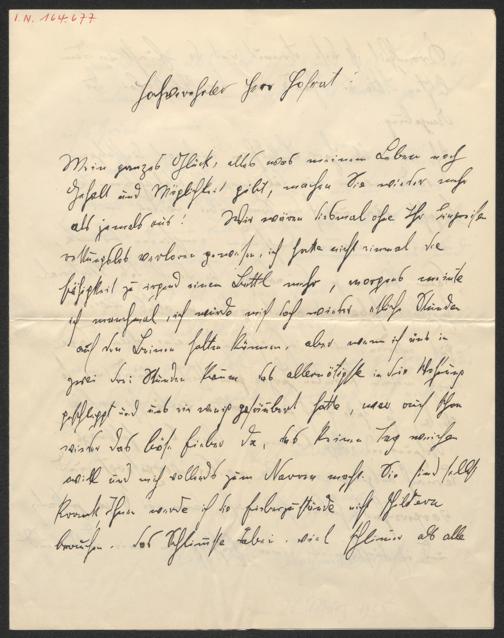 I.N. 164.677
Hochverehrter Herr Hofrat!
Mein ganzes Glück, alles was meinem Leben noch
Gehalt und Möglichkeit gibt, machen Sie wieder mehr
als jemals aus! Wir wären diesmal ohne Ihr Eingreifen
rettungslos verloren gewesen, ich hatte nicht einmal die
Fähigkeit zu irgend einem Bettel mehr, morgens meinte
ich manchmal, ich würde mich doch wieder etliche Stunden
auf den Beinen halten können, aber wenn ich uns in
zwei drei Stunden kaum das allernötigste in die Wohnung
geschleppt und uns ein wenig gesäubert hatte, war auch schon
wieder das böse Fieber da, das keinen Tag weichen
will und mich vollends zum Narren macht. Sie sind selbst
krank Ihnen werde ich die Fieberzustände nicht schildern
brauchen. das Schlimmste dabei. viel schlimmer als alle